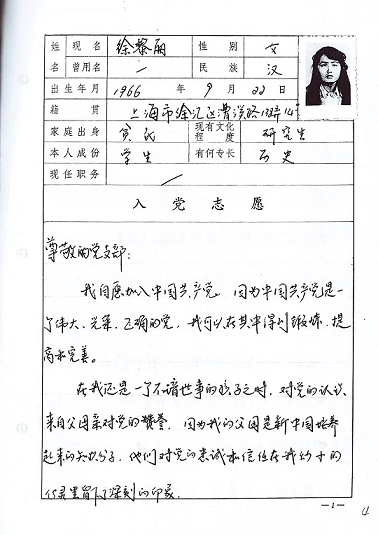 姓 现 名 徐黎丽 性 别 女
名 曾用名 / 民 族 汉
出生年月 1966 年 9 月 22 日
籍 贯 上海市徐汇区漕溪路
家庭出身 贫民 现有文化程度 研究生
本人成份 学生 有何专长 历史
现任职务 /
入 党 志 愿
尊敬的党支部:
我自愿加入中国共产党。因为中国共产党是一
个伟大、光荣、正确的党,我可以在其中得到锻炼、提
高和完善。
在我还是一个不谙世事的孩子之时,对党的认识
来自父母亲对党的赞誉。因为我的父母是新中国培养
起来的知识分子,他们对党的忠诚和信任在我幼小的
心灵里留下了深刻的印象。
—1—
4